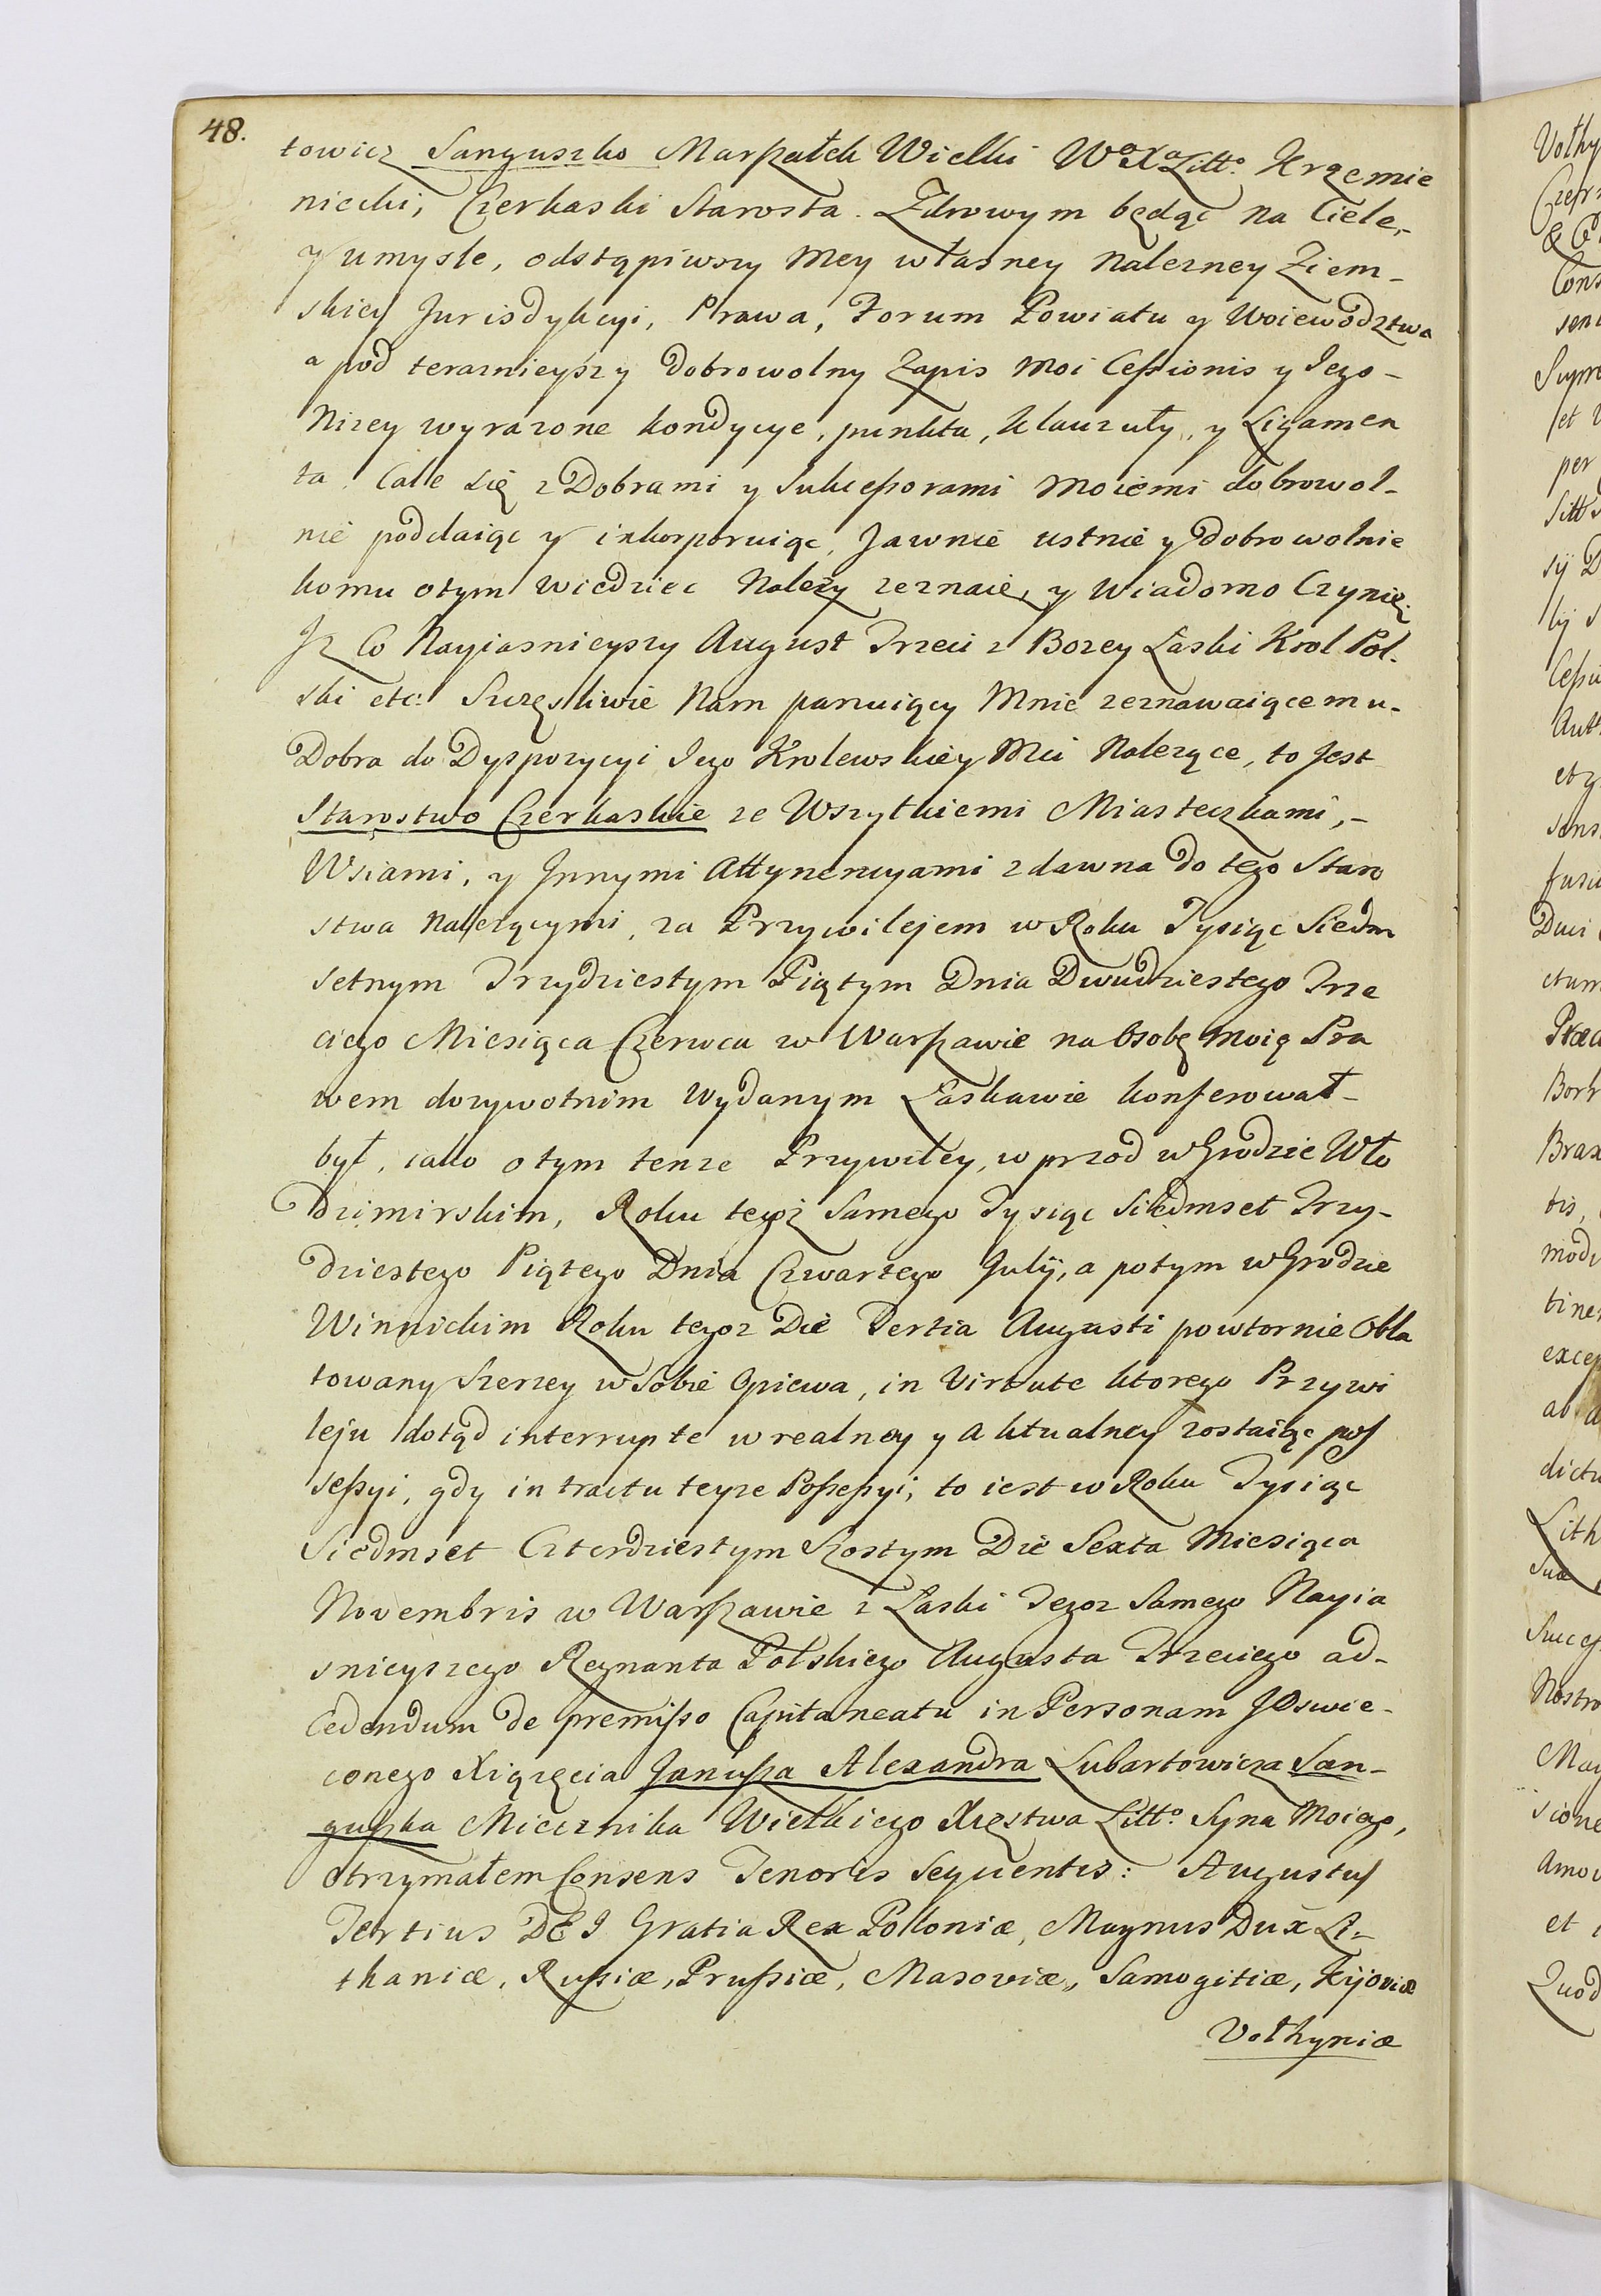 48.
towicz Sanguszko Marszałek Wielki Wo Xa Litto. Krzemie
niecki, Czerkaski Starosta. Zdrowym będąc na Ciele,-
y umysle, odstąpiwszy Mey własney Nalezney Ziem-
skiey Jurisdykcyi, Prawa, Forum Powiatu y Woiewodztwa
a pod terazniejszy Dobrowolny Zapis Moi Cessionis y Jego-
Nizey wyrazone kondycye, punkta, klauzuły, y Ligamen
ta. Cale się z Dobrami y Sukcessorami Moiemi dobrowol-
nie poddaiąc y inkorporuiąc, Jawnie ustnie y Dobrowolnie
komu otym wiedziec Nalezy zeznaię, y Wiadomo Czynię.
Jz Co Nayiasnieyszy August Trzeci z Bozey Łaski Krol Pol-
ski etc: Szczęsliwie Nam panuiący Mnie zeznawaiącemu-
Dobra do Dyspozycyi Jego Krolewskiey Mci Nalezące, to Jest
Starostwo Czerkaskie ze Wszytkiemi Miasteczkami,-
Wsiami, y Jnnymi Attynencyami zdawna do tego Staro
stwa Nalezącymi, za Przywilejem w Roku Tysiąc Siedm
setnym Trzydziestym Piątym Dnia Dwudziestego Trze
ciego Miesiąca Czerwca w Warszawie na Osobę Moią Pra
wem dozywotnim Wydanym Łaskawie konferował-
był, iako o tym tenze Przywiley, w przod w Grodzie Wło
Dzimirskim, Roku tegoz Samego Tysiąc Siedmset Trzy-
dziestego Piątego Dnia Czwartego Julij, a potym w Grodzie
Winnickim Roku tegoz Die Tertia Augusti powtornie Obla
towany Szerzey w Sobie Opiewa, in Virtute ktorego Przywi
leju dotąd interrupte w realney y Aktualney zostaiąc pos
sessyi, gdy in tractu teyze Possessyi, to iest w Roku Tysiąc
Siedmset Czterdziestym Szostym Die Sexta Miesiąca
Novembris w Warszawie z Łaski Tegoz Samego Nayia
snieyszego Regnanta Polskiego Augusta Trzeciego ad-
Cedendum de premisso Capitaneatu in Personam JOswie-
conego Xiązęcia Janusza Alexandra Lubartowicza San-
guszka Miecznika Wielkiego Xięstwa Litto. Syna Moiego,
Otrzymałem Consens Tenoris Sequentis: Augustus
Tertius DEI Gratia Rex Polloniæ, Magnus Dux Li-
thaniæ, Russiæ, Prussiæ, Masoviæ, Samogitiæ, Kijoviæ
Volhyniæ